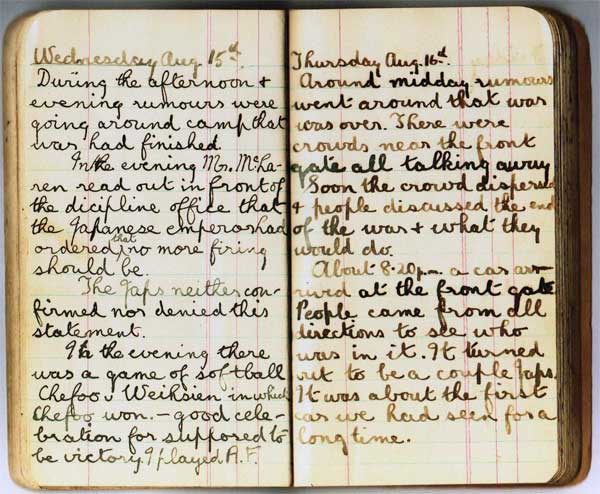 Wednesday Aug. 15th.
During the afternoon +
evening rumours were
going around camp that
war had finished.
In the evening Mr. McLa-
ren read out in front of
the dicipline office that
the Japanese emperor had
ordered that no more firing
should be.
The Japs neither con-
firmed nor denied this
statement.
In the evening there
was a game of softball
Chefoo v Weihsien in which
Chefoo won. – good cele-
bration for supposed to
be victory. I played R.F.
Thursday Aug. 16th.
Around midday rumours
went around that war
was over. There were
crowds near the front
gate all talking away
Soon the crowd dispersed
+ people discussed the end
of the war + what they
would do.
About 8.20 p.m. a car arr-
rived at the front gate
People came from all
directions to see who
was in it. It turned
out to be a couple Japs.
It was about the first
car we had seen for a
long time.